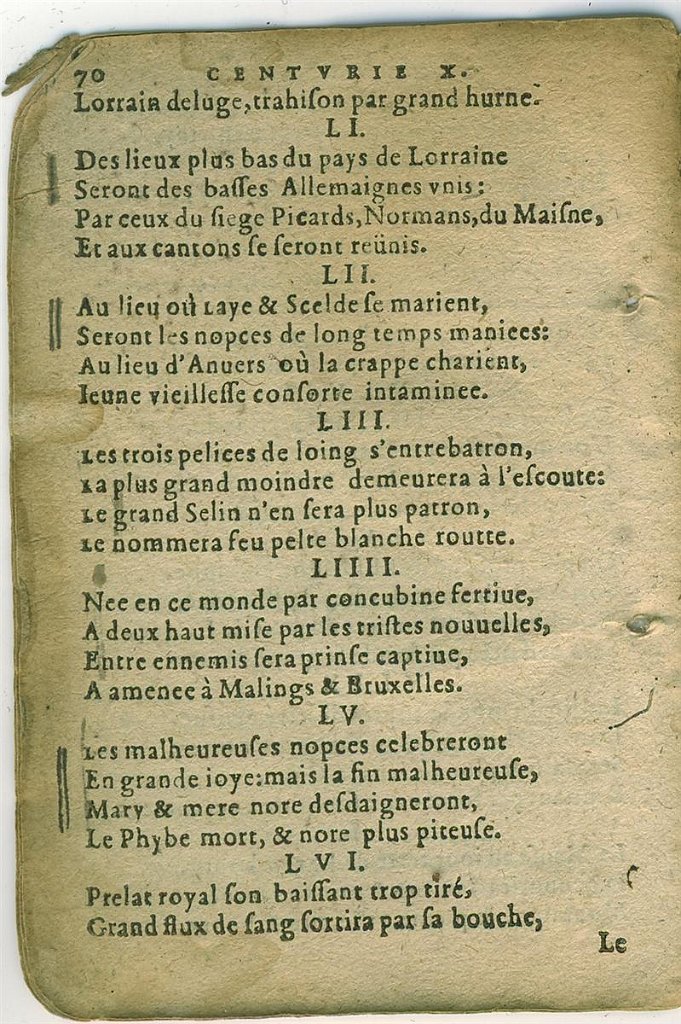 70 CENTVRIE X.
Lorrain deluge,trahiſon par grand hurne.
LI.
Des lieux plus bas du pays de Lorraine
Seront des baſſes Allemaignes vnis:
Par ceux du ſiege Picards,Normans,du Maiſne,
Et aux cantons ſe ſeront reünis.
LII.
Au lieu où Laye & Scelde ſe marient,
Seront les nopces de long temps maniees:
Au lieu d'Anuers où la crappe charient,
Ieune vieilleſſe conſorte intaminee.
LIII.
Les trois pelices de loing s'entrebatron,
La plus grand moindre demeurera à l'eſcoute:
Le grand Selin n'en ſera plus patron,
Le nommera feu pelte blanche routte.
LIIII.
Nee en ce monde par concubine fertiue,
A deux haut miſe par les triſtes nouuelles,
Entre ennemis ſera prinſe captiue,
A amenee à Malings & Bruxelles.
LV.
Les malheureuſes nopces celebreront
En grande ioye:mais la fin malheureuſe,
Mary & mere nore deſdaigneront,
Le Phybe mort, & nore plus piteuſe.
LVI.
Prelat royal ſon baiſſant trop tiré,
Grand flux de ſang ſortira par ſa bouche,
Le